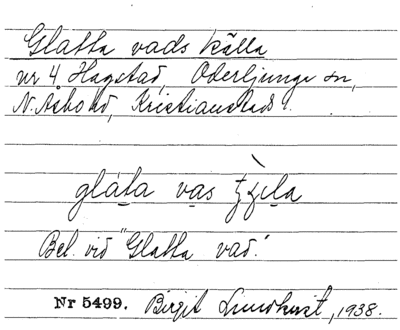 Glatta vads källa
nr 4 Hagstad, Oderljunga sn,
N. Åsbo hd, Kristianstads l.
gláta vas
Bel. vid "Glatta vad".
Nr 5499. Birgit Lundkvist, 1938.